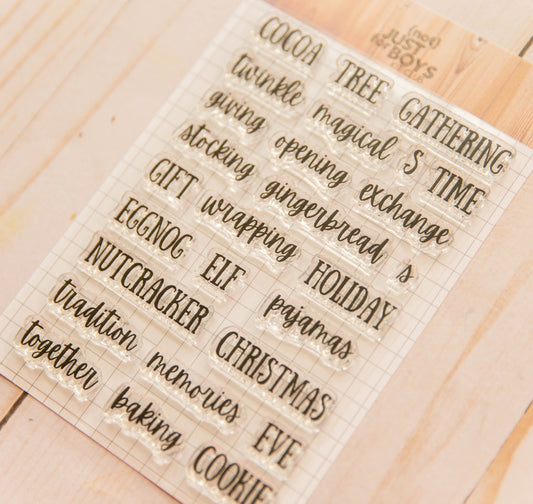 (not)
JUST
for the
BOYS
COCOA TREE GATHERING
twinkle magical S TIME
giving opening exchange
stocking gingerbread s
GIFT wrapping HOLIDAY
EGGNOG ELF pajamas
NUTCRACKER CHRISTMAS
tradition memories EVE
together baking COOKIE